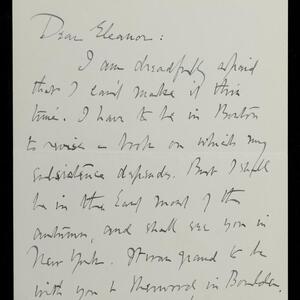 Dear Eleanor:
I am dreadfully afraid
that I can't make it this
time. I have to be in Boston
to revise a book on which my
subsistence depends. But I shall
be in the East most of the
autumn, and shall see you in
New York. It was grand to be
with you & Sherwood in Boulder.